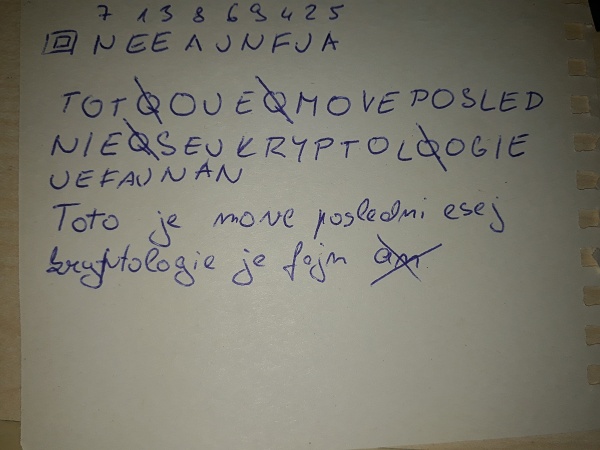 7 1 3 8 6 9 4 2 5
NEEAJNFJA
TOTQOJEQMOVEPOSLED
NIEQSEJKRYPTOLQOGIE
JEFAJNAN
Toto je move posledni esej
kryptologie je fajn an